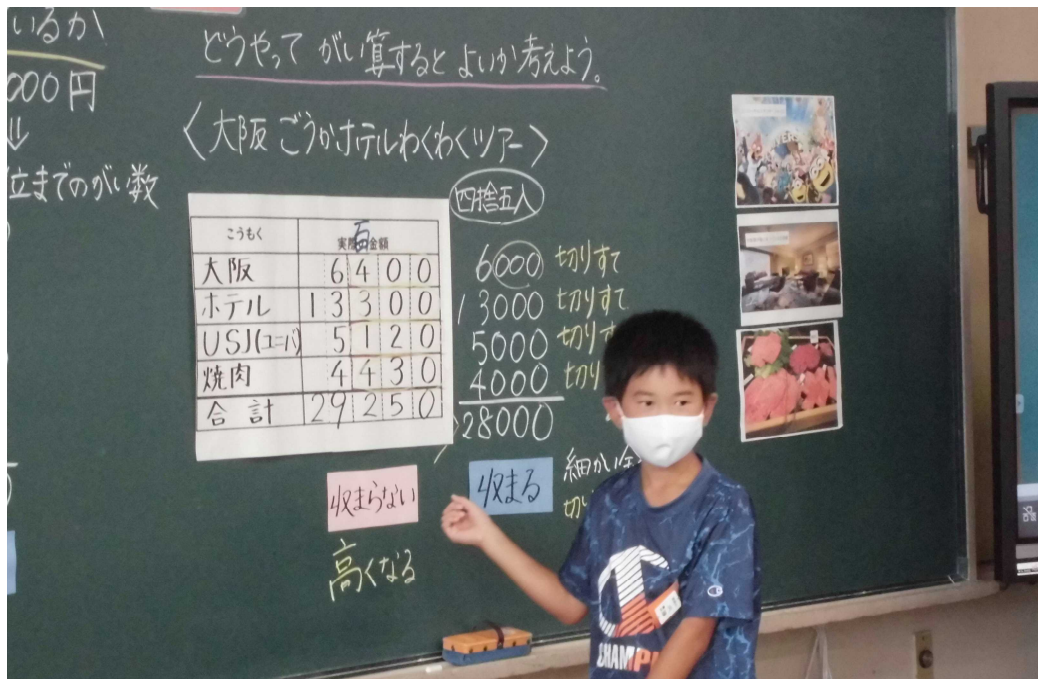 いるか
000円
⇓
位までのがい数
どうやって がい算するとよいか考えよう。
〈大阪ごうかホテルわくわくツアー〉
こうもく 実際の金額
百
大阪 6400
ホテル 13300
USJ(ユニバ) 5120
焼肉 4430
合計 29250
四捨五入
6000 切りすて
13000 切りすて
5000 切りす
4000 切り
28000
収まらない
高くなる
収まる
細かい
切り
CHAMPI